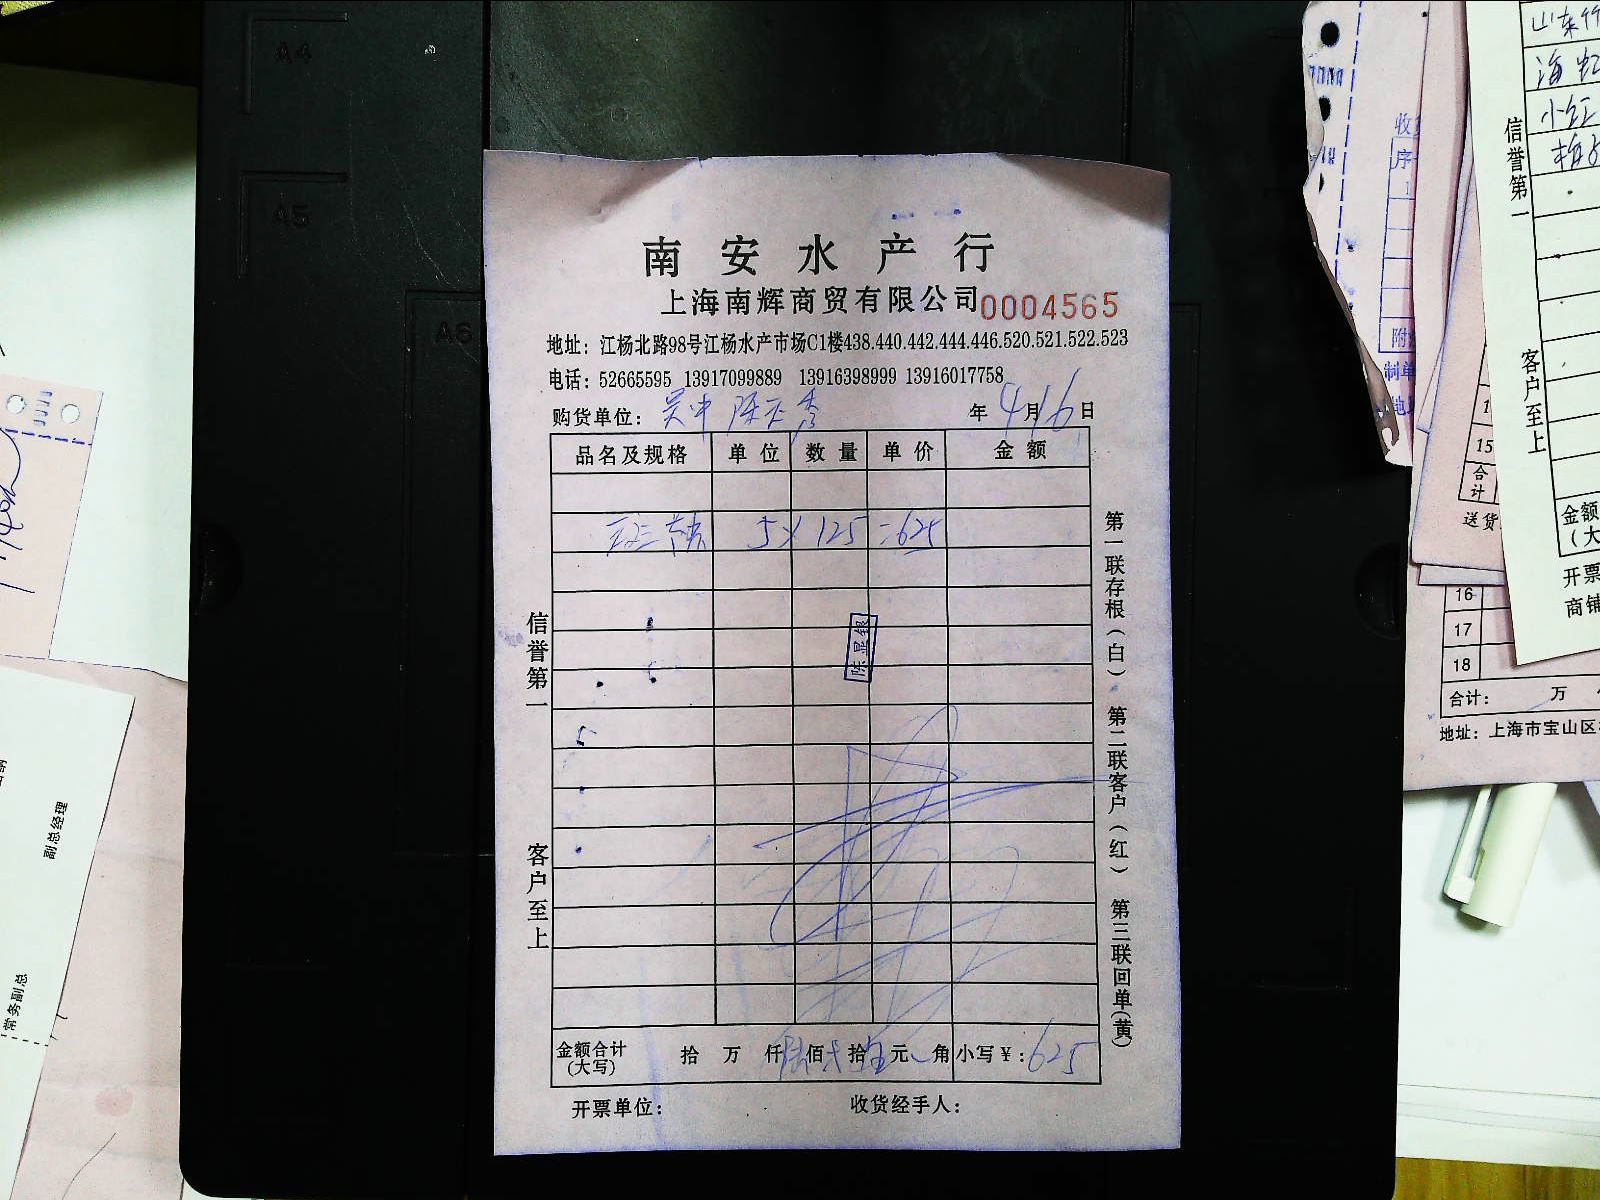 A4
A5
A6
南安水产行
上海南辉商贸有限公司 0004565
地址：江杨北路98号江杨水产市场C1楼438.440.442.444.446.520.521.522.523
电话：52665595 13917099889 13916398999 13916017758
购货单位： 年 4月16日
品名及规格 单位 数量 单价 金额
5 × 125 = 625
陈显银
信誉第一
客户至上
第一联存根（白） 第二联客户（红） 第三联回单（黄）
金额合计（大写） 拾 万 仟 陆佰 拾 伍元 角 小写￥：625
开票单位： 收货经手人：
副总经理
常务副总
山东
海虹
小红
信誉第一
客户至上
金额
开票
商铺
15
合计
送货
16
17
18
合计： 万
地址：上海市宝山区